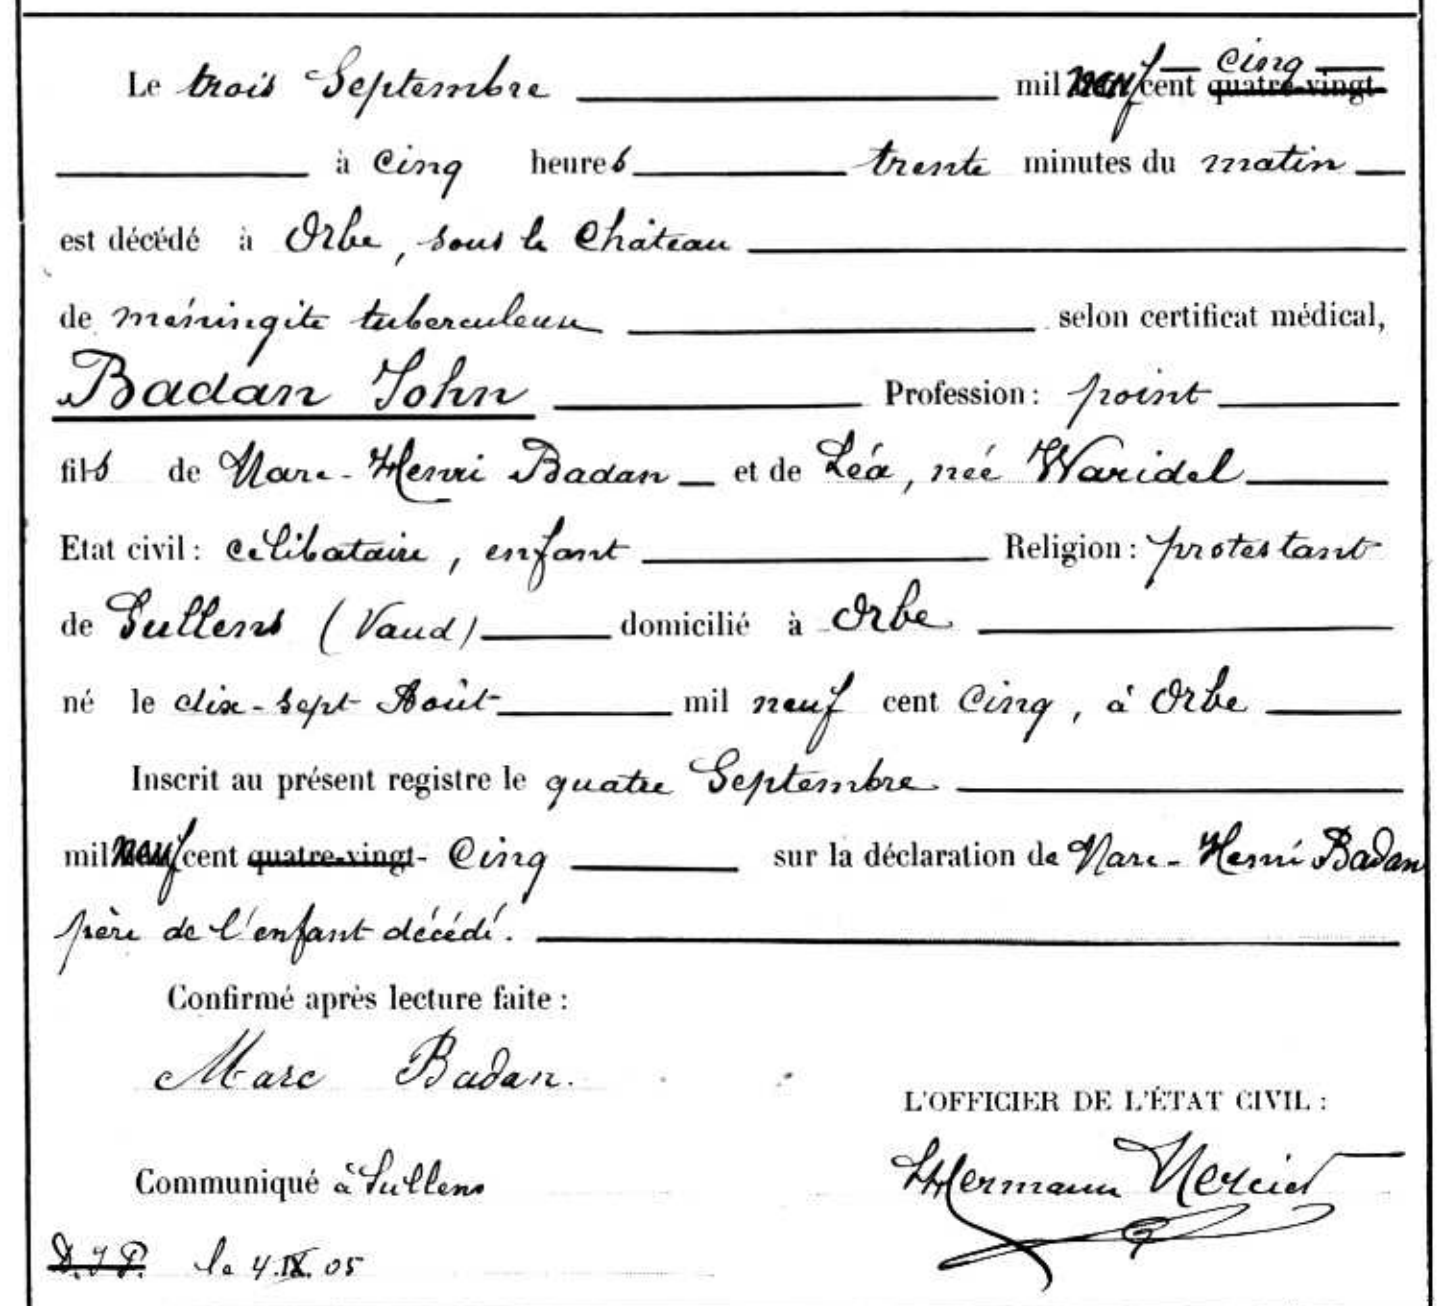 Le trois Septembre mil neuf cent quatre-vingt- Cinq
à Cinq heures trente minutes du matin
est décédé à Orbe, sous le Château
de méningite tuberculeuse selon certificat médical,
Badan John Profession: point
fils de Marc-Henri Badan et de Léa, née Waridel
Etat civil: célibataire, enfant Religion: protestant
de Sullens (Vaud) domicilié à Orbe
né le dix-sept Août mil neuf cent Cinq, à Orbe
Inscrit au présent registre le quatre Septembre
mil neuf cent quatre-vingt- Cinq sur la déclaration de Marc-Henri Badan
père de l'enfant décédé.
Confirmé après lecture faite:
Marc Badan.
L'OFFICIER DE L'ÉTAT CIVIL:
Communiqué à Sullens
Hermann Mercier
D.J.P. le 4.IX.05